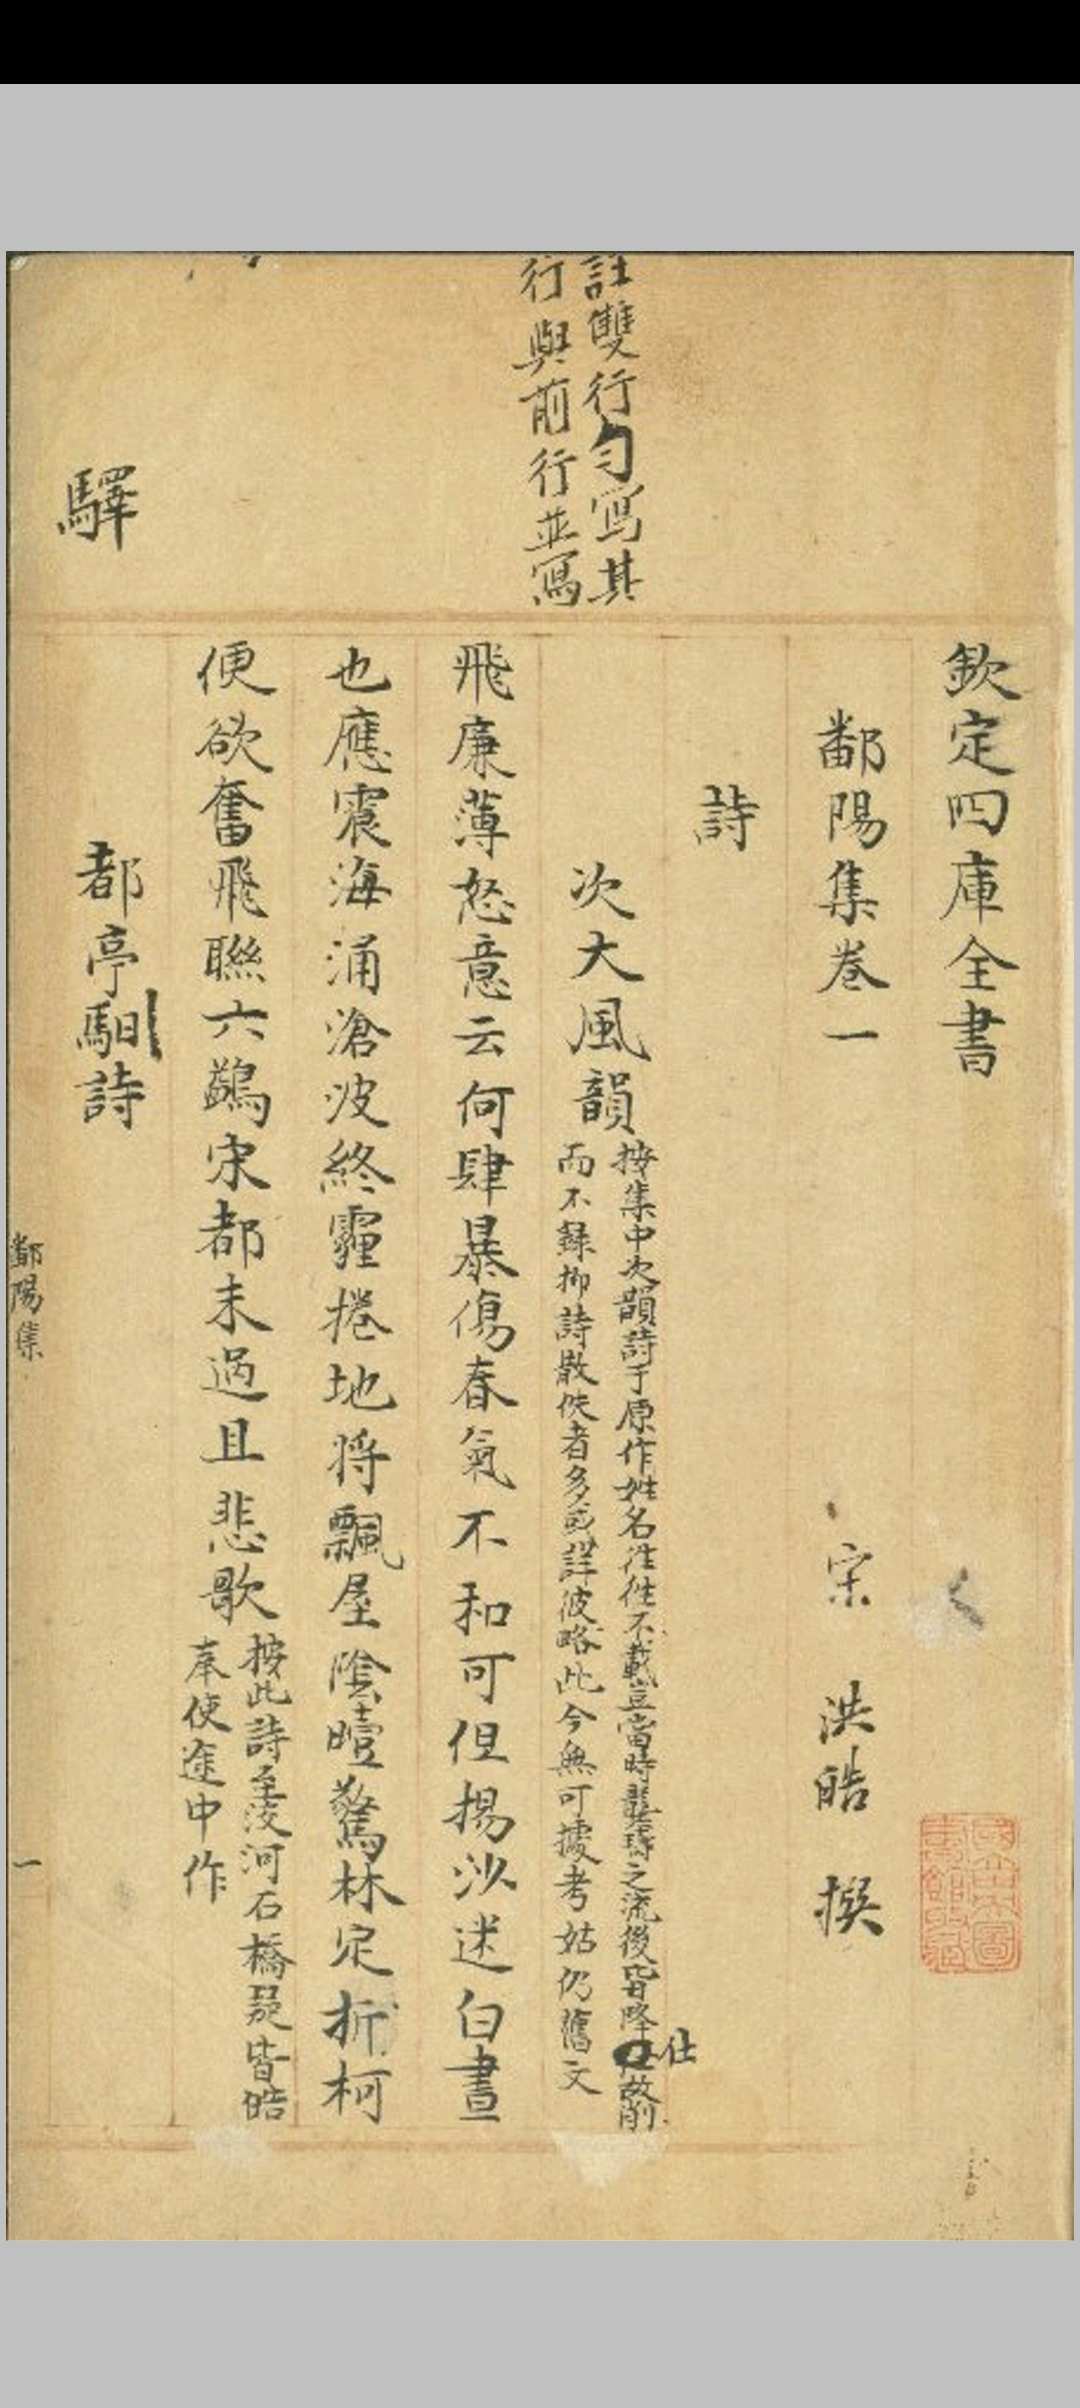 欽定四庫全書
鄱陽集卷一
宋 洪皓 撰
詩
次大風韻
按集中次韻詩于原作姓名往往不載豈當時龔璹之流後皆降仕故削
而不錄抑詩散佚者多或詳彼略此今無可據考姑仍舊文
註雙行勻寫其
行與前行並寫
飛廉薄怒意云何肆暴傷春氣不和可但揚沙迷白晝
也應震海涌滄波終霾捲地將飄屋陰曀驚林定折柯
便欲奮飛聯六鷁宋都未過且悲歌
按此詩至淩河石橋詩皆皓
奉使途中作
驛
都亭馹詩
鄱陽集
一